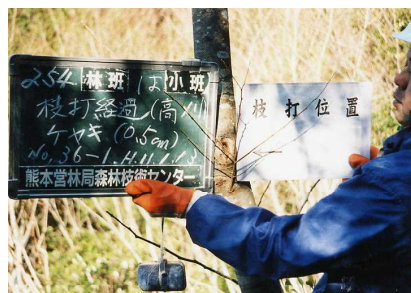 254 林班 は 小班
枝打経過 (高)川
ケヤキ (0.5cm)
No.36-1. H.11.1.13
熊本営林局森林技術センター
枝打位置